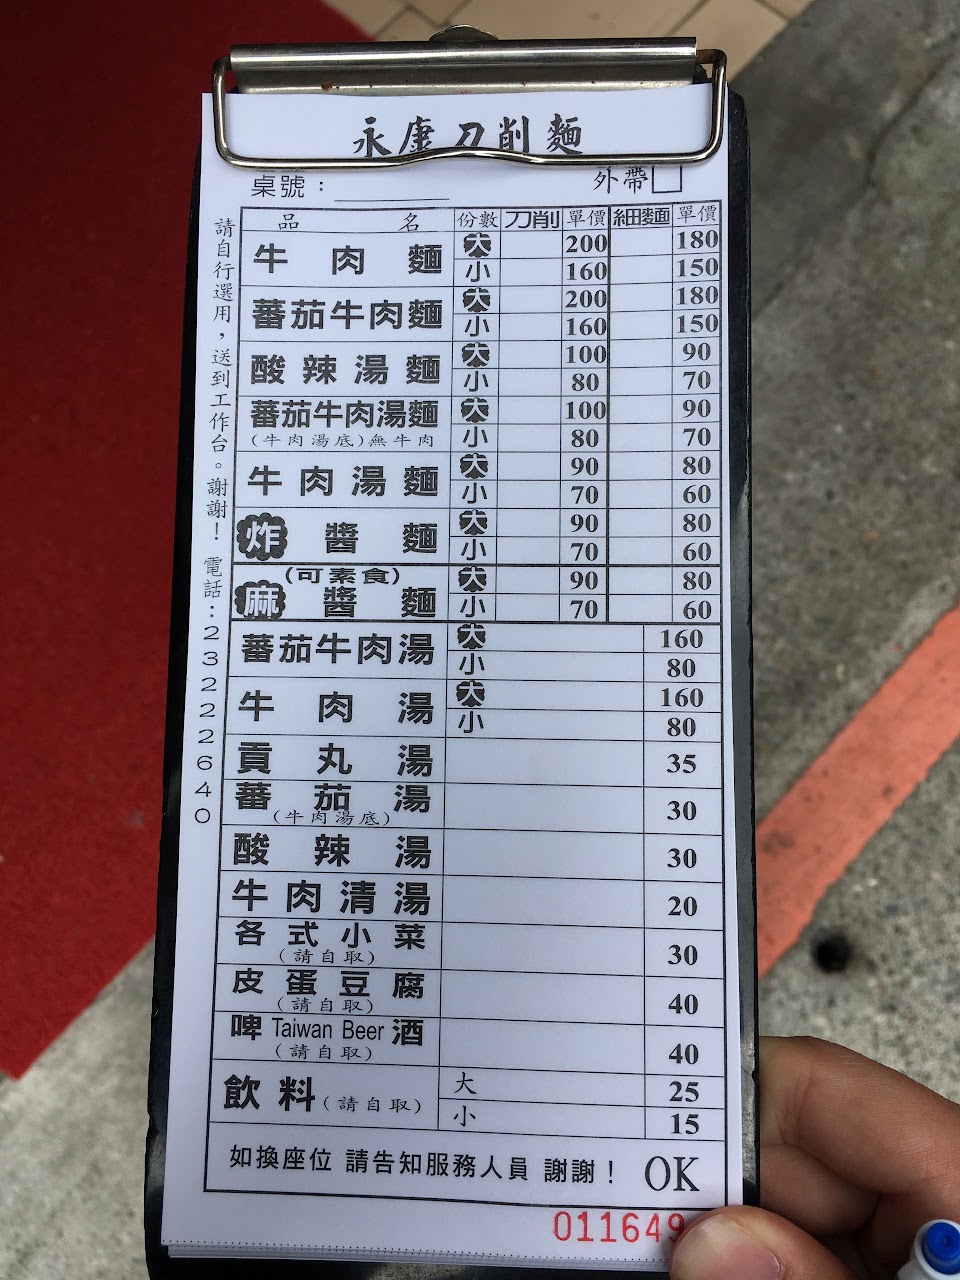 永康刀削麵
桌號： 外帶
品名 份數 刀削 單價 細麵 單價
牛肉麵 大 200 180
小 160 150
蕃茄牛肉麵 大 200 180
小 160 150
酸辣湯麵 大 100 90
小 80 70
蕃茄牛肉湯麵 大 100 90
(牛肉湯底)無牛肉 小 80 70
牛肉湯麵 大 90 80
小 70 60
炸醬麵 大 90 80
小 70 60
(可素食) 大 90 80
麻醬麵 小 70 60
蕃茄牛肉湯 大 160
小 80
牛肉湯 大 160
小 80
貢丸湯 35
蕃茄湯 30
(牛肉湯底)
酸辣湯 30
牛肉清湯 20
各式小菜 30
(請自取)
皮蛋豆腐 40
(請自取)
啤 Taiwan Beer 酒 40
(請自取)
飲料(請自取) 大 25
小 15
如換座位 請告知服務人員 謝謝！ OK
011649
請自行選用，送到工作台。謝謝！ 電話：23222640